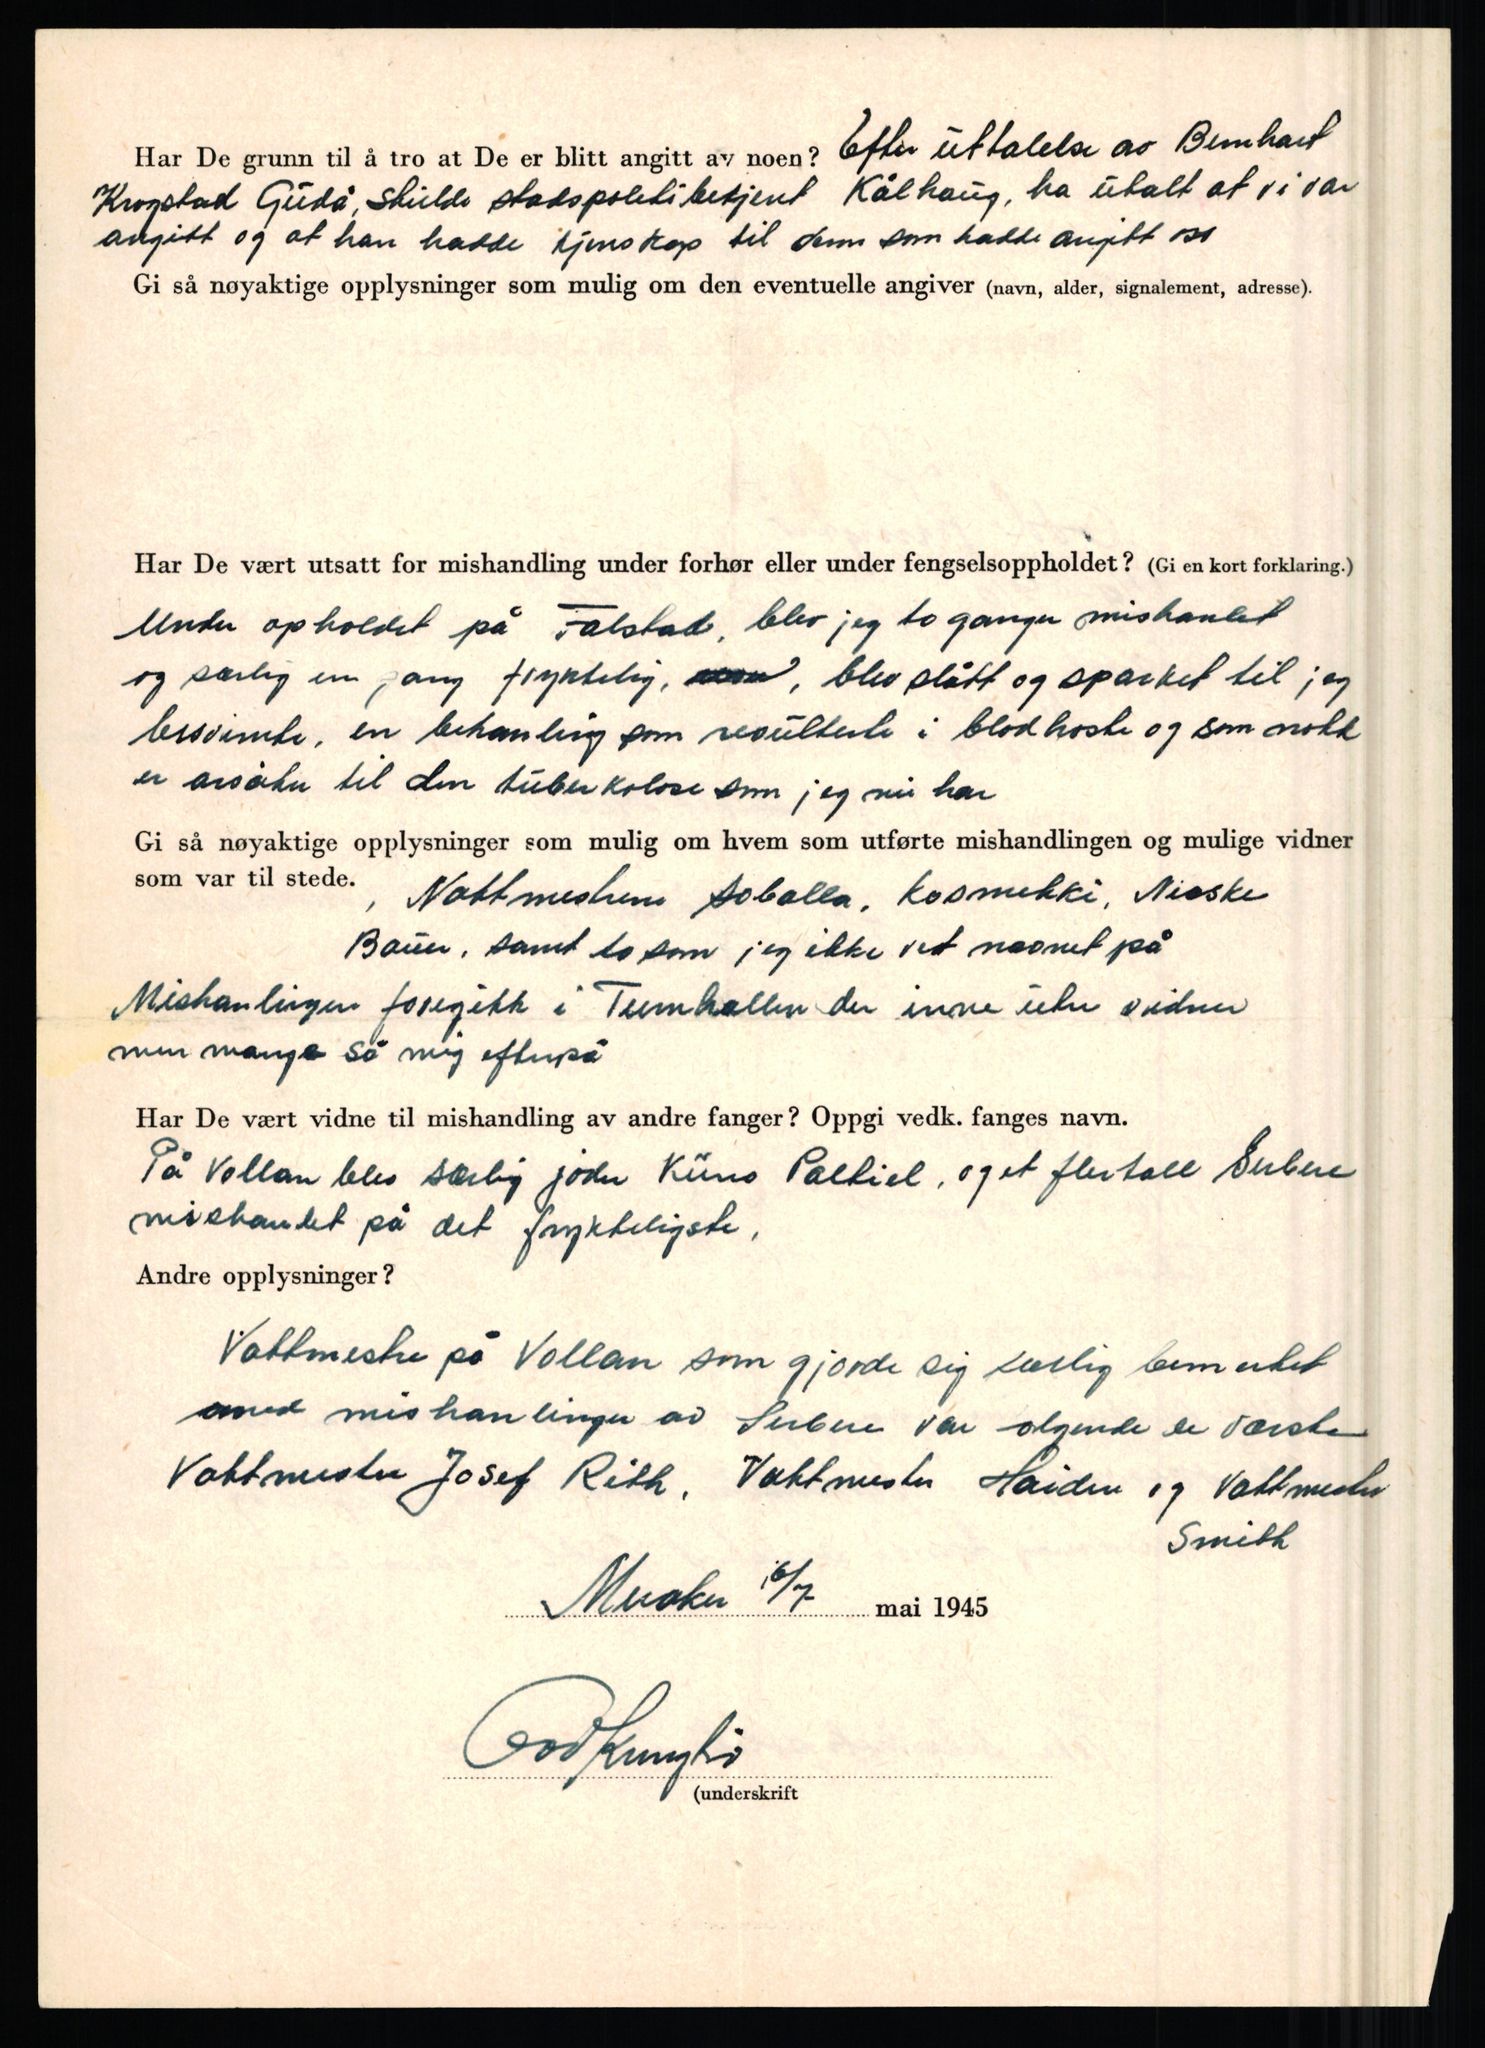 Har De grunn til å tro at De er blitt angitt av noen? Efter üttalelse av Bernhart
Krogstad Güdå, skulde statspolitibetjent Kålhaüg, ha ütalt at vi var
angitt og at han hadde kjenskap til denn som hadde angitt oss
Gi så nøyaktige opplysninger som mulig om den eventuelle angiver (navn, alder, signalement, adresse).
Har De vært utsatt for mishandling under forhør eller under fengselsoppholdet? (Gi en kort forklaring.)
Under opholdet på Falstad, blev jeg to ganger mishanlet
og særlig en gang fryktelig, blev slått og sparket til jeg
besvimte, en behanling som resülterte i blodhoste og som nokk
er årsaken til den tüberkolose som jeg nü har
Gi så nøyaktige opplysninger som mulig om hvem som utførte mishandlingen og mulige vidner
som var til stede. , Vaktmestrene Soballa, Kosmekki, Nieske
Baüer, samt to som jeg ikke vet navnet på
Mishanlingen foregikk i Turnhallen der inne üten vidner
men mange så mig efterpå
Har De vært vidne til mishandling av andre fanger? Oppgi vedk. fanges navn.
På Vollan blev særlig jøden Küno Paltiel, og et flertall Serbere
mishandlet på det frykteligste,
Andre opplysninger?
Vaktmestre på Vollan som gjorde sig særlig bemerket
med mishanlinger av Serbere var ølgende de værste
Vaktmester Josef Rith, Vaktmester Haiden og Vaktmester
Smith
Meraker 16/7 mai 1945
(underskrift